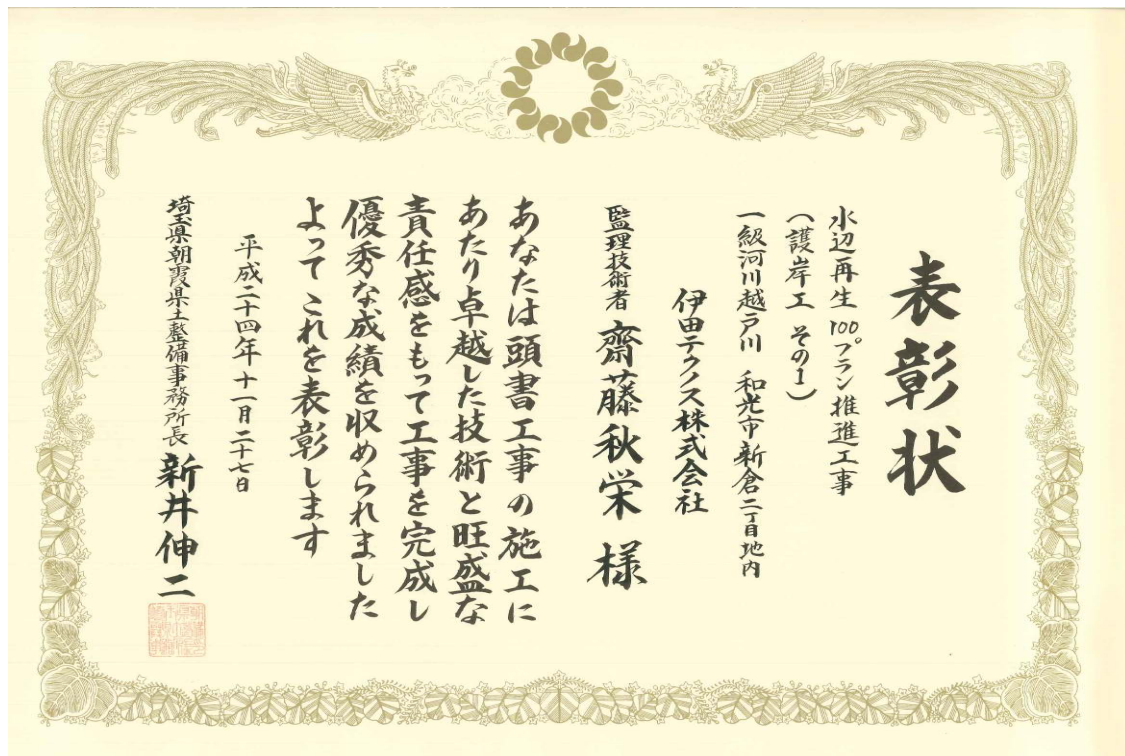 表彰状
水辺再生100プラン推進工事
(護岸工 その1)
一級河川越戸川 和光市新倉二丁目地内
伊田テクノス株式会社
監理技術者 齋藤秋栄 様
あなたは頭書工事の施工に
あたり卓越した技術と旺盛な
責任感をもって工事を完成し
優秀な成績を収められました
よって これを表彰します
平成二十四年十一月二十七日
埼玉県朝霞県土整備事務所長 新井伸二